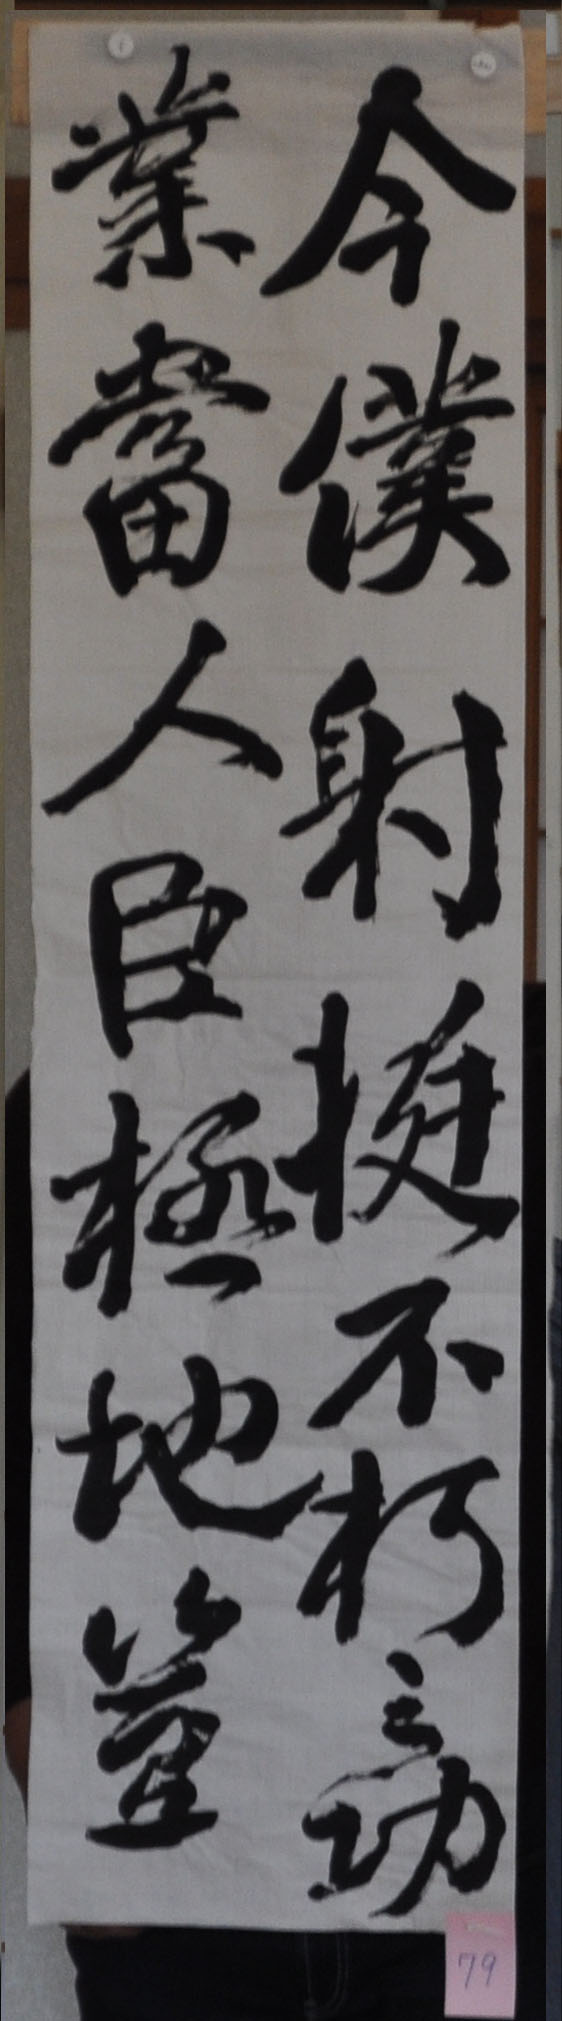 今僕射挺不朽之功
業當人臣極地豈
79